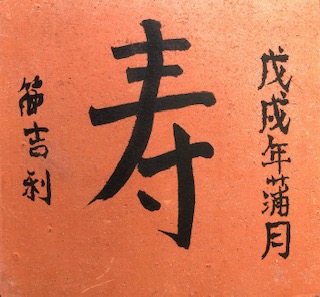 戊戌年蒲月
寿
笛吉利